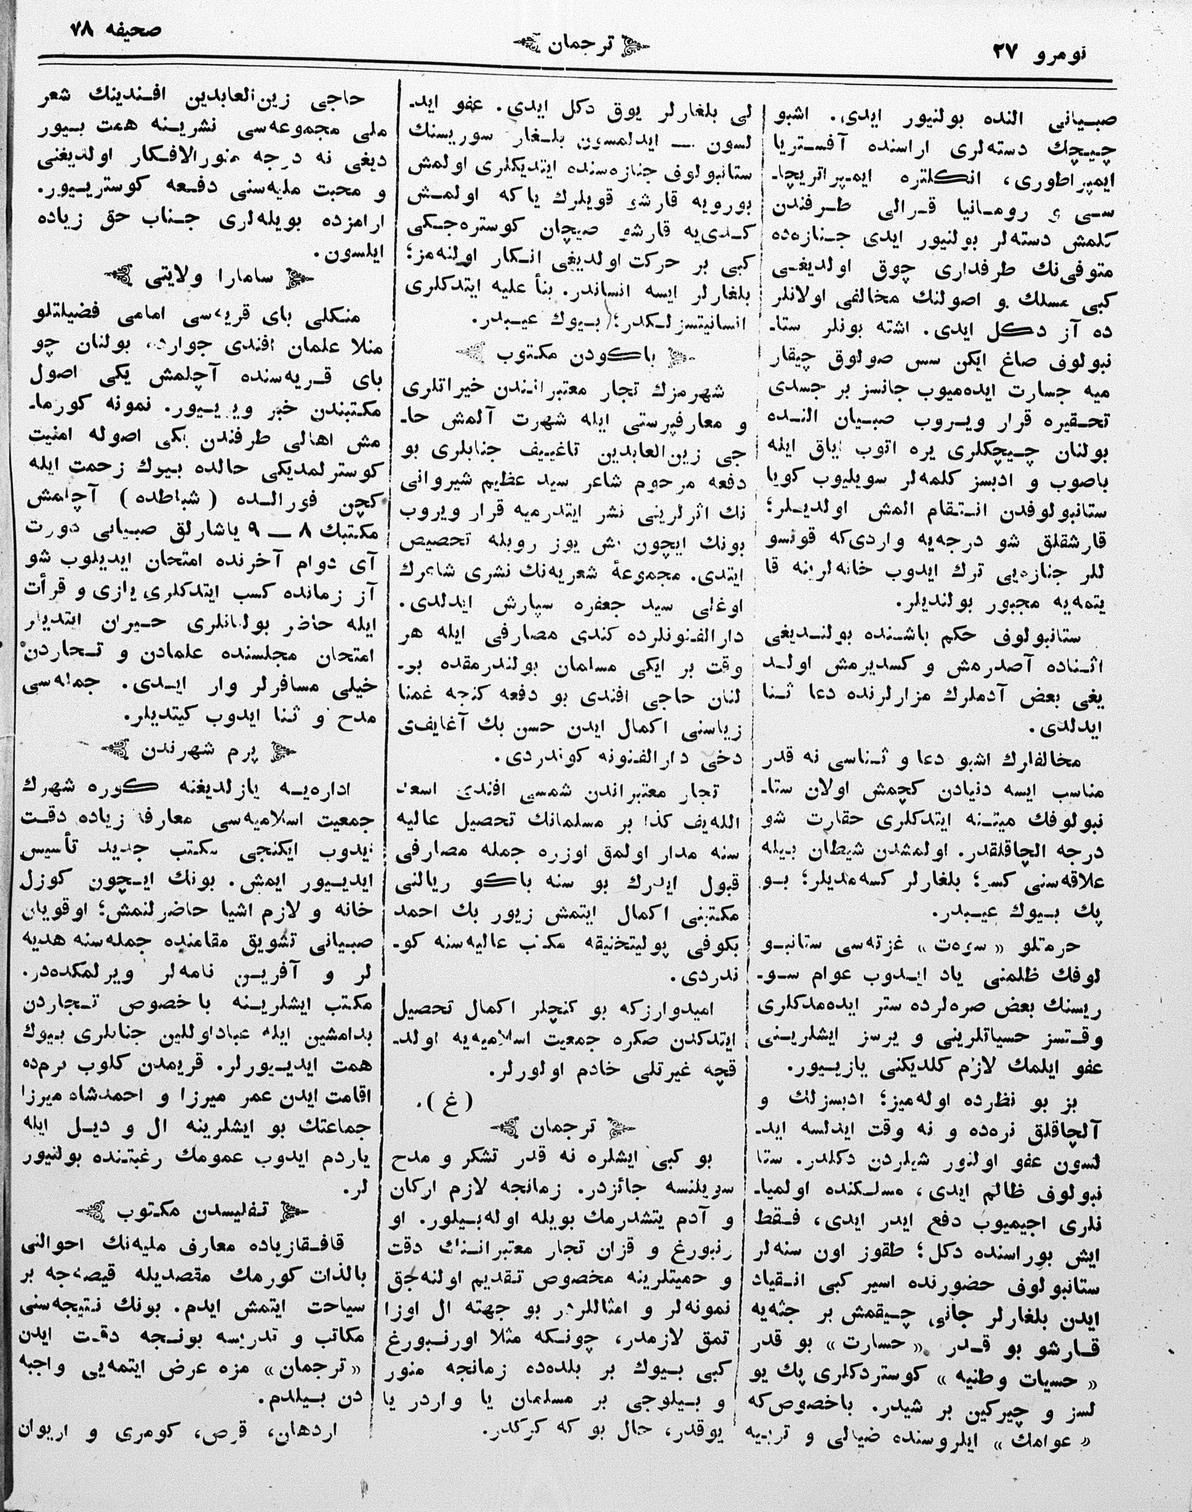 نومرو ٢٧
ترجمان
صحیفه ٧٨
صبیانی النده بولنیور ایدی. اشبو
چیچك دسته‌لری اراسنده آفستریا
ایمپراطوری، انكلتره ایمپراتریچا-
سی و رومانیا قرالی طرفندن
كلمش دسته‌لر بولنیور ایدی جنازه‌ده
متوفی‌نك طرفداری چوق اولدیغی
كبی مسلك و اصولنك مخالفی اولانلر
ده آز دكل ایدی. اشته بونلر ستا-
نبولوف صاغ ایكن سس صولوق چیقار
میه جسارت ایده‌میوب جانسز بر جسدی
تحقیره قرار ویروب صبیان النده
بولنان چیچكلری یره اتوب ایاق ایله
باصوب و ادبسز كلمه‌لر سویلیوب كویا
ستانبولوفدن انتقام المش اولدیلر؛
قارشقلق شو درجه‌یه واردی‌كه قونسو
للر جنازه‌یی ترك ایدوب خانه‌لرینه قا
یتمه‌یه مجبور بولندیلر.
ستانبولوف حكم باشنده بولندیغی
اثناده آصدرمش و كسدیرمش اولد
یغی بعض آدملرك مزارلرنده دعا ثنا
ایدلدی.
مخالفلرك اشبو دعا و ثناسی نه قدر
مناسب ایسه دنیادن كچمش اولان ستا-
نبولوفك میتنه ایتدكلری حقارت شو
درجه الچاقلقدر. اولمشدن شیطان بیله
علاقه‌سنی كسر؛ بلغارلر كسه‌مدیلر؛ بو
پك بیوك عیبدر.
حرمتلو «سوه‌ت» غزته‌سی ستانبو
لوفك ظلمنی یاد ایدوب عوام سو-
ریسنك بعض صره‌لرده ستر ایده‌مدكلری
وقتسز حسیاتلرینی و یرسز ایشلرینی
عفو ایلمك لازم كلدیكنی یازییور.
بز بو نظرده اوله‌میز؛ ادبسزلك و
آلچاقلق نره‌ده و نه وقت ایدلسه اید-
لسون عفو اولنور شیلردن دكلدر. ستا
نبولوف ظالم ایدی، مسلكنده اولمیا-
نلری اجیمیوب دفع ایدر ایدی، فقط
ایش بوراسنده دكل؛ طقوز اون سنه‌لر
ستانبولوف حضورنده اسیر كبی انقیاد
ایدن بلغارلر جانی چیقمش بر جثه‌یه
قارشو بو قدر «جسارت» بو قدر
«حسیات وطنیه» كوستردكلری پك یو
لسز و چیركین بر شیدر. باخصوص‌كه
«عوامك» ایلروسنده ضیالی و تربیه
لی بلغارلر یوق دكل ایدی. عفو اید-
لسون — ایدلمسون بلغار سوریسنك
ستانبولوف جنازه‌سنده ایتدیكلری اولمش
بورویه قارشو قویلرك یاكه اولمش
كدی‌یه قارشو صیچان كوستره‌جكی
كبی بر حركت اولدیغی انكار اولنه‌مز؛
بلغارلر ایسه انساندر. بنأ علیه ایتدكلری
انسانیتسزلكدر؛ بیوك عیبدر.
باكودن مكتوب
شهرمزك تجار معتبراندن خیراتلری
و معارفپرستی ایله شهرت آلمش حا-
جی زین‌العابدین تاغییف جنابلری بو
دفعه مرحوم شاعر سید عظیم شیروانی
نك اثرلرینی نشر ایتدرمیه قرار ویروب
بونك ایچون بش یوز روبله تخصیص
ایتدی. مجموعهٔ شعریه‌نك نشری شاعرك
اوغلی سید جعفره سپارش ایدلدی.
دارالفنونلرده كندی مصارفی ایله هر
وقت بر ایكی مسلمان بولندرمقده بو-
لنان حاجی افندی بو دفعه كنجه غمنا
زیاسنی اكمال ایدن حسن بك آغایف‌ی
دخی دارالفنونه كوندردی.
تجار معتبراندن شمسی افندی اسعد
الله‌یف كذا بر مسلمانك تحصیل عالیه
سنه مدار اولمق اوزره جمله مصارفی
قبول ایدرك بو سنه باكو ریالنی
مكتبنی اكمال ایتمش زیور بك احمد
بكوفی پولیتخنیقه مكتب عالیه‌سنه كو-
ندردی.
امیدوارزكه بو كنجلر اكمال تحصیل
ایتدكدن صكره جمعیت اسلامیه‌یه اولد-
قچه غیرتلی خادم اولورلر.
(غ).
ترجمان
بو كبی ایشلره نه قدر تشكر و مدح
سویلنسه جائزدر. زمانجه لازم اركان
و آدم یتشدرمك بویله اوله‌بیلور. او
رنبورغ و قزان تجار معتبرانك دقت
و حمیتلرینه مخصوص تقدیم اولنه‌جق
نمونه‌لر و امثاللردر بو جهته ال اوزا
تمق لازمدر، چونكه مثلا اورنبورغ
كبی بیوك بر بلده‌ده زمانجه منور
و بیلوجی بر مسلمان یا واردر یا
یوقدر، حال بو كه كركدر.
حاجی زین‌العابدین افندینك شعر
ملی مجموعه‌سی نشرینه همت بیور
دیغی نه درجه منورالافكار اولدیغنی
و محبت ملیه‌سنی دفعه كوستریيور.
ارامزده بویله‌لری جناب حق زیاده
ایلسون.
سامارا ولایتی
منكلی بای قریه‌سی امامی فضیلتلو
منلا علمان افندی جوارده بولنان چو
بای قریه‌سنده آچلمش یكی اصول
مكتبندن خبر ویریيور. نمونه كورما-
مش اهالی طرفندن یكی اصوله امنیت
كوسترلمدیكی حالده بیوك زحمت ایله
كچن فورالده (شباطده) آچلمش
مكتبك ٨ — ٩ یاشارلق صبیانی دورت
آی دوام آخرنده امتحان ایدیلوب شو
آز زمانده كسب ایتدكلری یازی و قرأت
ایله حاضر بولنانلری حیران ایتدیلر
امتحان مجلسنده علمادن و تجاردن
خیلی مسافرلر وار ایدی. جمله‌سی
مدح و ثنا ایدوب كیتدیلر.
پرم شهرندن
اداره‌یه یازلدیغنه كوره شهرك
جمعیت اسلامیه‌سی معارفه زیاده دقت
ایدوب ایكنجی مكتب جدید تأسیس
ایدیيور ایمش. بونك ایچون كوزل
خانه و لازم اشیا حاضرلنمش؛ اوقویان
صبیانی تشویق مقامنده جمله‌سنه هدیه
لر و آفرین نامه‌لر ویرلمكده‌در.
مكتب ایشلرینه باخصوص تجاردن
بدامشین ایله عباداوللین جنابلری بیوك
همت ایدیيورلر. قریمدن كلوب پرم‌ده
اقامت ایدن عمر میرزا و احمدشاه میرزا
جماعتك بو ایشلرینه ال و دیل ایله
یاردم ایدوب عمومك رغبتنده بولنیور
لر.
تفلیسدن مكتوب
قافقازیاده معارف ملیه‌نك احوالنی
بالذات كورمك مقصدیله قیصه‌جه بر
سیاحت ایتمش ایدم. بونك نتیجه‌سنی
مكاتب و تدریسه بونجه دقت ایدن
«ترجمان» مزه عرض ایتمه‌یی واجبه
دن بیلدم.
اردهان، قرص، كومری و اریوان